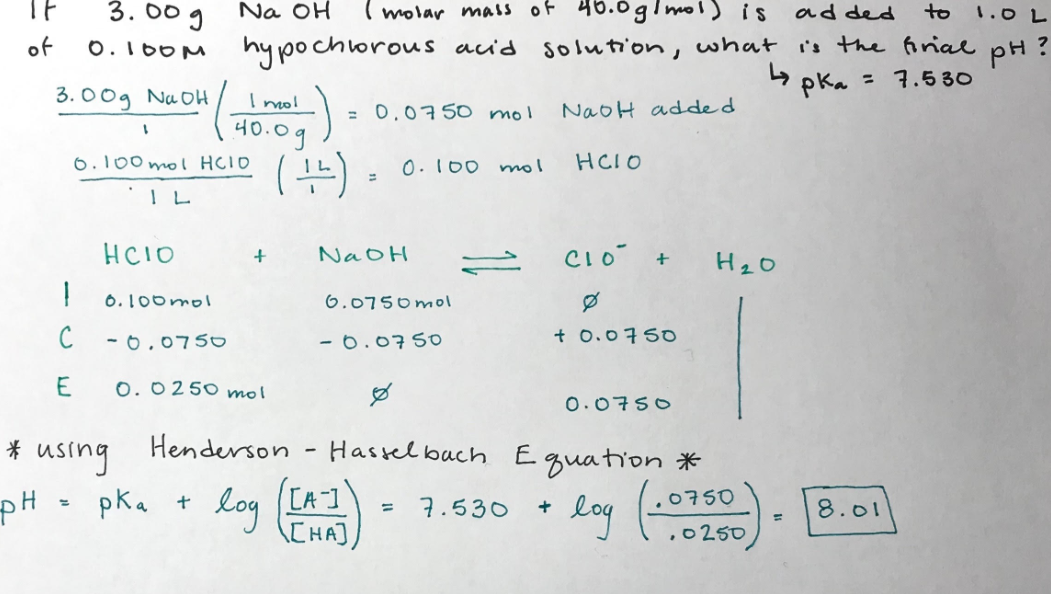 If 3.00 g NaOH (molar mass of 40.0g/mol) is added to 1.0 L
of 0.100M hypochlorous acid solution, what is the final pH?
↳ pKa = 7.530
3.00g NaOH / 1 (1 mol / 40.0g) = 0.0750 mol NaOH added
0.100 mol HClO / 1 L (1L / 1) = 0.100 mol HClO
HClO + NaOH ⇌ ClO⁻ + H₂O
I 0.100mol 0.0750mol ∅
C -0.0750 -0.0750 +0.0750
E 0.0250 mol ∅ 0.0750
* using Henderson - Hasselbach Equation *
pH = pKa + log ([A⁻] / [HA]) = 7.530 + log (.0750 / .0250) = 8.01